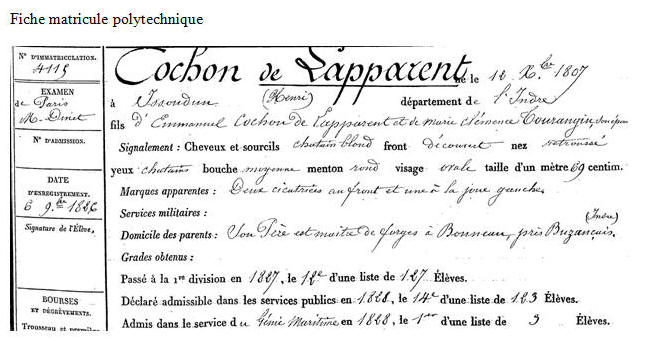 Fiche matricule polytechnique
N° D'IMMATRICULATION.
4115
EXAMEN
de Paris
M. Dinet
N° D'ADMISSION.
DATE
D'ENREGISTREMENT.
6 9.bre 1826
Signature de l'Élève.
BOURSES
ET DÉGRÈVEMENTS.
Trousseau et première
Cochon de Lapparent né le 12 X.bre 1807
(Henri)
à Issoudun département de l'Indre
fils d'Emmanuel Cochon de Lapparent et de Marie Clémence Tourangin, son épouse
Signalement : Cheveux et sourcils chatain blond front découvert nez retroussé
yeux chatains bouche moyenne menton rond visage ovale taille d'un mètre 69 centim.
Marques apparentes : Deux cicatrices au front et une à la joue gauche.
Services militaires :
(Indre)
Domicile des parents : Son Père est maitre de forges à Bonneau, près Buzançais.
Grades obtenus :
Passé à la 1re division en 1827, le 12e d'une liste de 127 Élèves.
Déclaré admissible dans les services publics en 1828, le 14e d'une liste de 123 Élèves.
Admis dans le service du Génie Maritime en 1828, le 1er d'une liste de 3 Élèves.